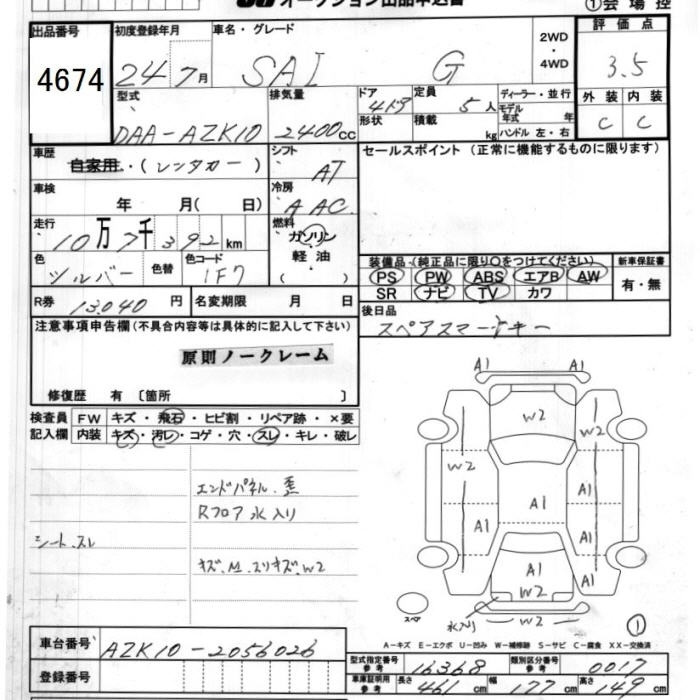 オークション出品申込書
①会場控
出品番号 初度登録年月 車名・グレード 2WD・4WD 評価点
4674 24年7月 SAI G 3.5
型式 排気量 ドア 4ドア 定員 5人 ディーラー・並行 外装 内装
DAA-AZK10 2400cc 形状 積載 kg モデル年式 年 ハンドル 左・右 C C
車歴 自家用・(レンタカー) シフト AT セールスポイント (正常に機能するものに限ります)
車検 年 月( 日) 冷房 AAC
走行 10万7千392km 燃料 ガソリン 軽油・( )
色 シルバー 色替 色コード 1F7
装備品 (純正品に限り○をつけてください) 新車保証書
PS PW ABS エアB AW 有・無
SR ナビ TV カワ
R券 13,040円 名変期限 月 日 後日品
スペアスマートキー
注意事項申告欄 (不具合内容等は具体的に記入して下さい)
原則ノークレーム
修復歴 有 〔箇所 〕
検査員 FW キズ・飛石・ヒビ割・リペア跡・×要
記入欄 内装 キズ・汚レ・コゲ・穴・スレ・キレ・破レ
エンドパネル.歪
Rフロア水入リ
シート.スレ
キズ.M.スリキズ.W2
A1 A1
W2 W2
W2
A1 A1
A1 A1
A1
A1
W2
スペア 水入リ W2 ①
A-キズ E-エクボ U-凹み W-補修跡 S-サビ C-腐食 XX-交換済
車台番号 AZK10-2056026
型式指定番号 参考 16368 類別区分番号 参考 0017
登録番号 車庫証明用 参考 長さ 461cm 幅 177cm 高さ 149cm